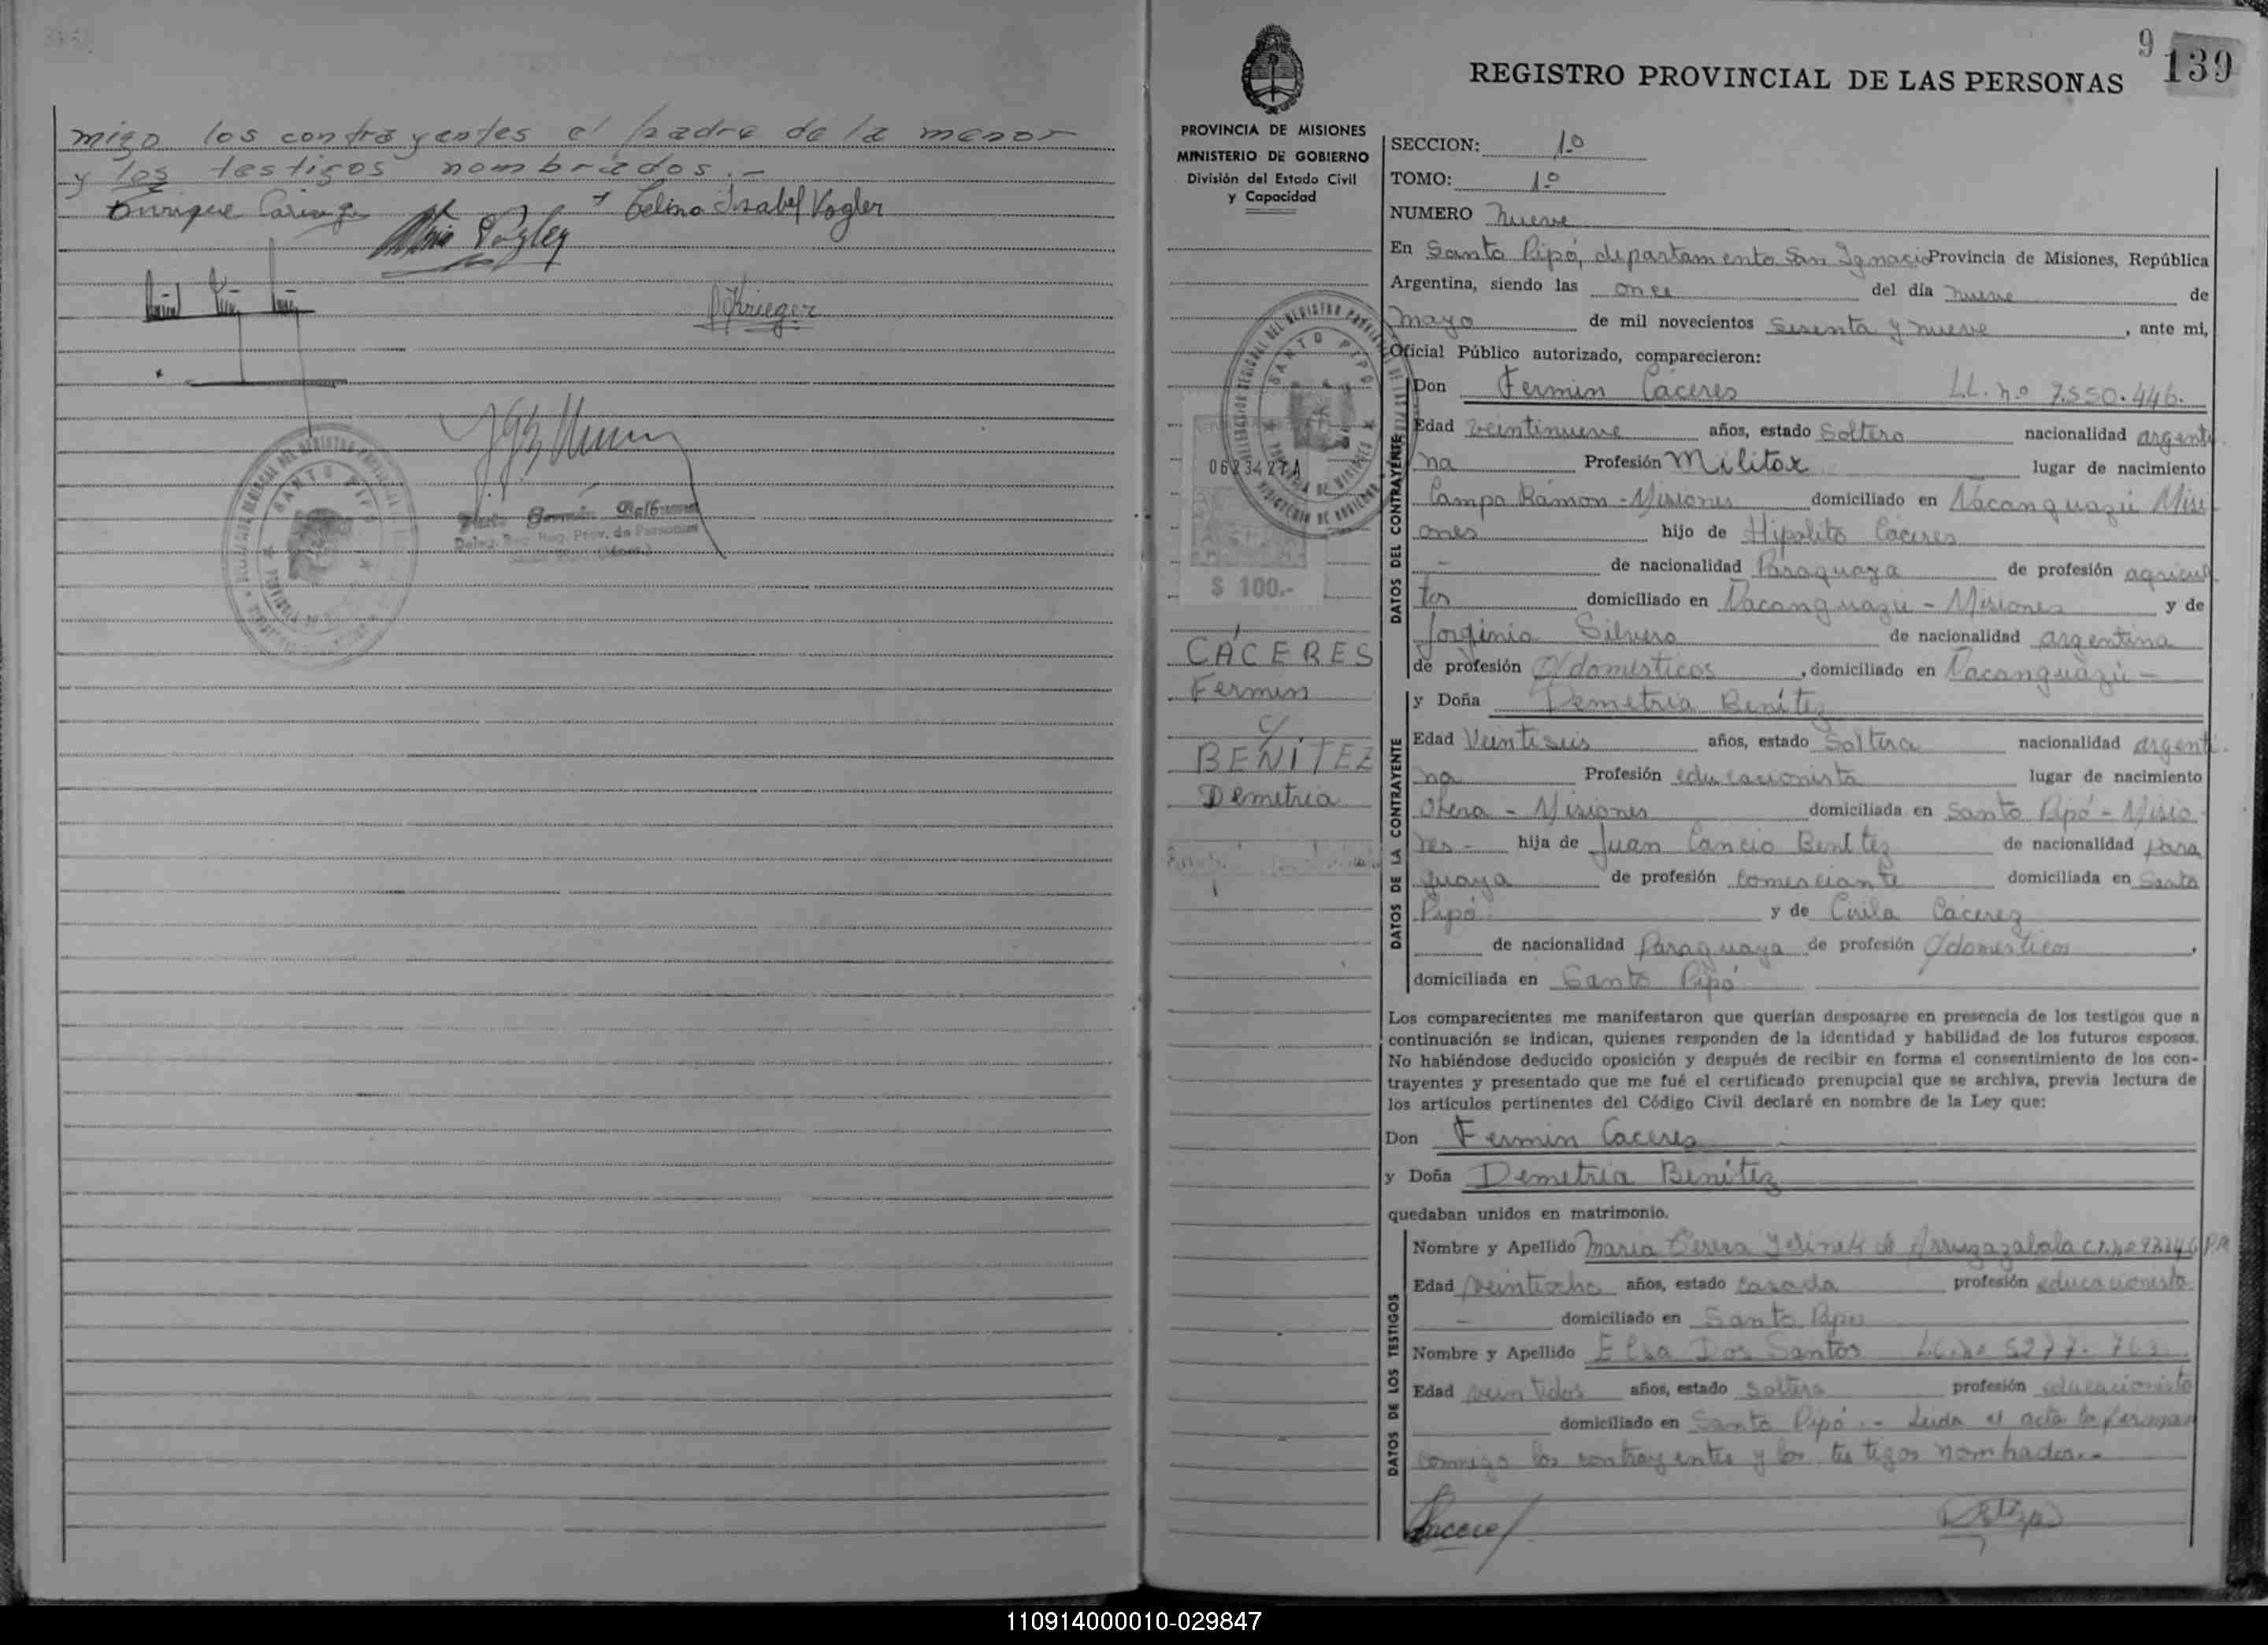 migo los contrayentes el padre de la menor
y los testigos nombrados.-
Enrique
+ Celina Isabel Vogler
Vogler
Krieger
SANTO PIPO
9
139
REGISTRO PROVINCIAL DE LAS PERSONAS
PROVINCIA DE MISIONES
MINISTERIO DE GOBIERNO
División del Estado Civil
y Capacidad
SANTO PIPO
$ 100.-
CÁCERES
Fermin
c/
BENÍTEZ
Demetria
SECCION: 1º
TOMO: 1º
NUMERO nueve
En Santo Pipó, departamento San Ignacio Provincia de Misiones, República
Argentina, siendo las once del día nueve de
mayo de mil novecientos sesenta y nueve, ante mi,
Oficial Público autorizado, comparecieron:
DATOS DEL CONTRAYENTE
Don Fermin Cáceres L.L. nº 7.550.446.
Edad veintinueve años, estado Soltero nacionalidad argenti
na Profesión Militar lugar de nacimiento
Campo Ramon - Misiones domiciliado en Ñacanguazú Misi
ones hijo de Hipolito Caceres
- de nacionalidad Paraguaya de profesión agricul
tor domiciliado en Ñacanguazu - Misiones y de
Silvero de nacionalidad argentina
de profesión Q/domesticos, domiciliado en Ñacanguazú -
DATOS DE LA CONTRAYENTE
y Doña Demetria Benítez
Edad Veintiseis años, estado Soltera nacionalidad argenti
na Profesión educacionista lugar de nacimiento
Obera - Misiones domiciliada en Santo Pipó - Misio
nes - hija de Juan Cancio Benítez de nacionalidad para
guaya de profesión Comerciante domiciliada en Santo
Pipó. y de Cirila Cácerez
de nacionalidad Paraguaya de profesión Q/domesticos,
domiciliada en Santo Pipó
Los comparecientes me manifestaron que querían desposarse en presencia de los testigos que a
continuación se indican, quienes responden de la identidad y habilidad de los futuros esposos.
No habiéndose deducido oposición y después de recibir en forma el consentimiento de los con-
trayentes y presentado que me fué el certificado prenupcial que se archiva, previa lectura de
los artículos pertinentes del Código Civil declaré en nombre de la Ley que:
Don Fermin Caceres
y Doña Demetria Benítez
quedaban unidos en matrimonio.
DATOS DE LOS TESTIGOS
Nombre y Apellido Maria Teresa de Arrugazabala
Edad veintiocho años, estado casada profesión educacionista
- domiciliado en Santo Pipó
Nombre y Apellido Elsa Dos Santos L.C. nº 5277.763
Edad veintidos años, estado soltera profesión educacionista
domiciliado en Santo Pipó.- Leida el acta la firman
conmigo los contrayentes y los testigos nombrados.-
Caceres
110914000010-029847